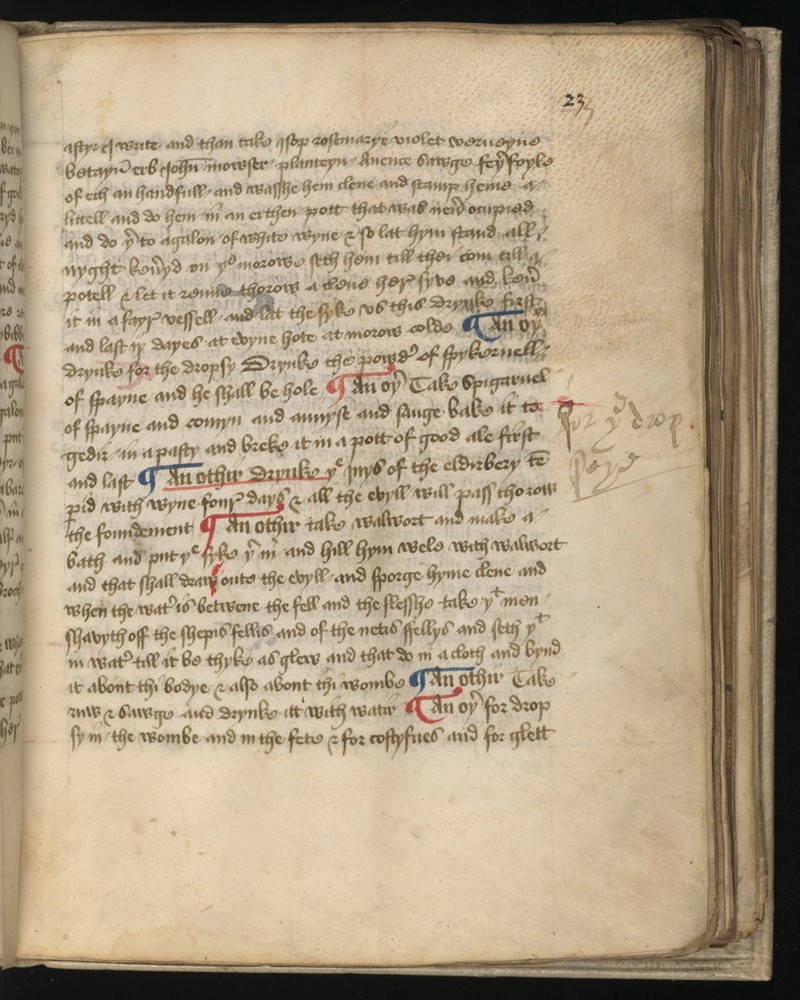 23
astyr I write and than take isop rosmarye violet verueyne
betayn erb John mowser planteyn Auence sawge feyfoyle
of ech an handfull and wasshe hem clene and stamp heme a
litell and do hem in an erthen pott that was neuer ocupied
and do yr to a galon of white wyne & so lat hym stand all
nyght keueryd on ye morowe seth hem till thei com till a
potell & let it renne thorow a clene her syve and keuer
it in a fayr vessell and lat the syke vs this drynke first
and last ix dayes at evyne hote at morow colde ¶ An oyr
drynke for the dropsy Drynke the powder of spykernell
of spayne and he shall be hole ¶ An oyr Take spigurnel
of spayne and comyn and annyse and sauge bake it to
gedir in a pasty and breke it in a pott of good ale first
and last ¶ An othir drynke ye Jnys of the eldirbery te
pid with wyne four days & all the evyll will pass thorow
the foundement ¶ An othir take walwort and make a
bath and put ye syke yr in and hill hym wele with walwort
and that shall draw onto the evyll and sporge hyme clene and
when the water is betwene the fell and the flesshe take yt men
shavyth off the shepis fellis and of the netis ffellys and seth yt
in water till it be thyke as glew and that do in a cloth and bynd
it about thi bodye & also about thi wombe ¶ An othir Take
ruw & sawge and drynke itt with watir ¶ An oyr for drop
sy in the wombe and in the fete & for costyfnes and for glett
for ye drop